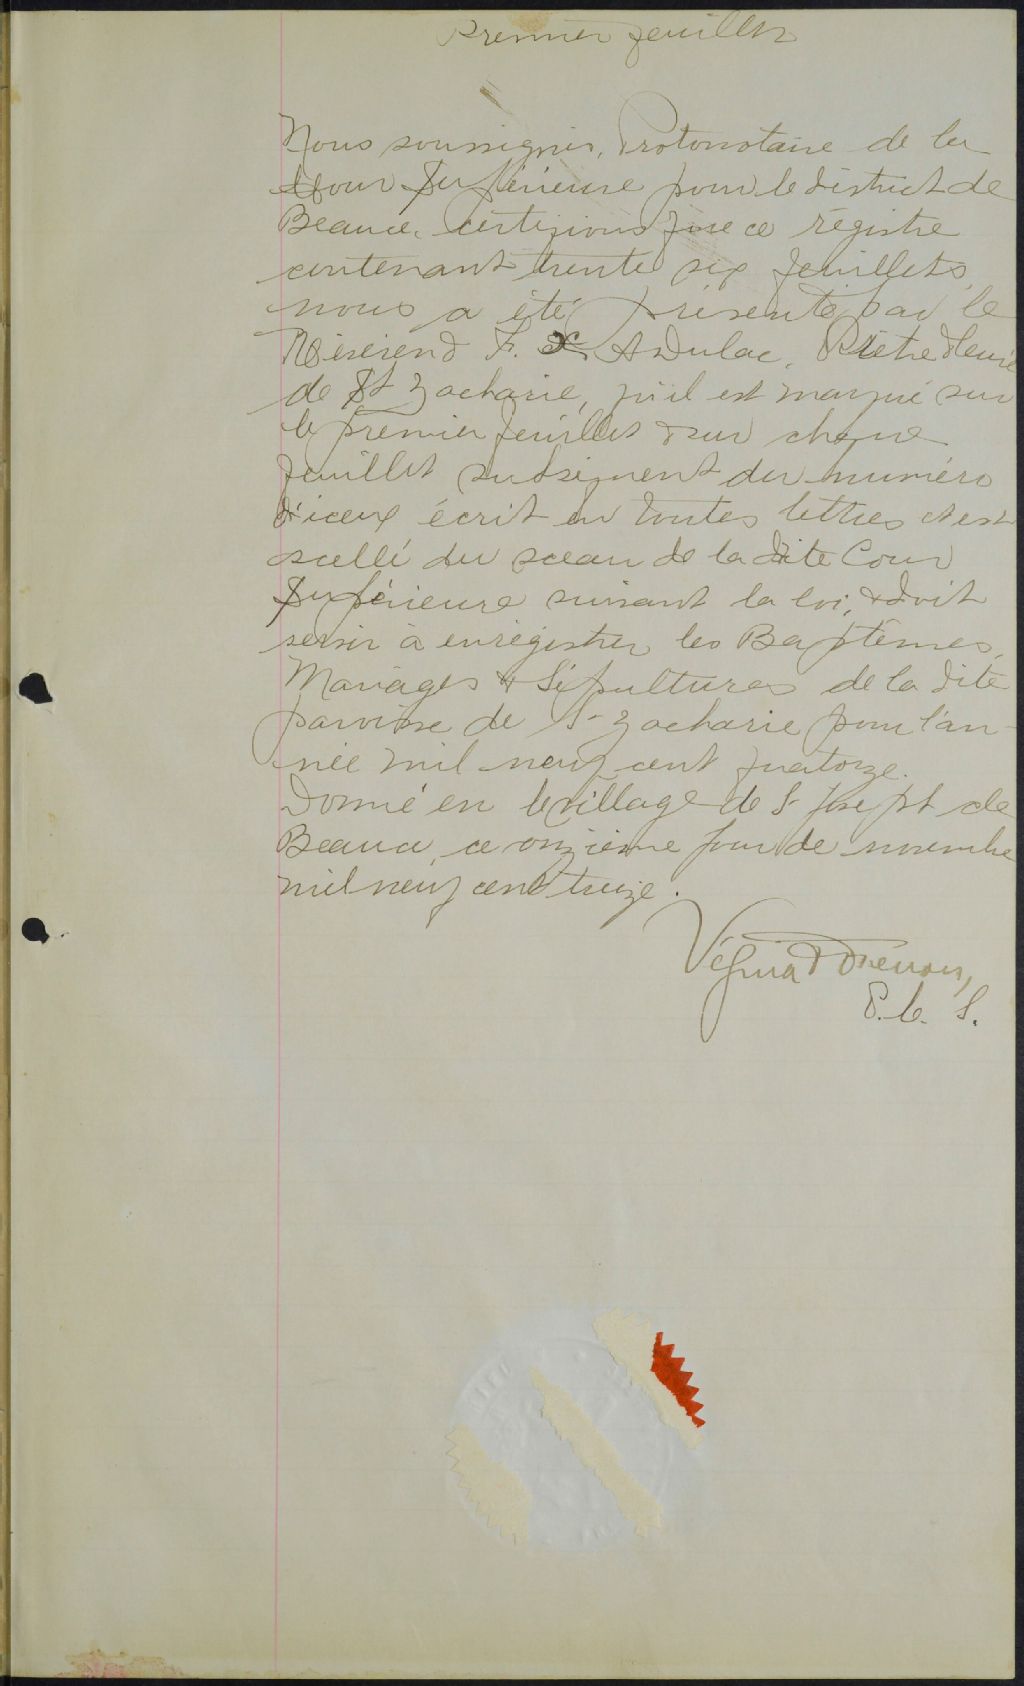 Premier feuillet
Nous soussignés, Protonotaire de la
Cour Supérieure pour le district de
Beauce, certifions que ce régistre
contenant trente six feuillets,
nous a été présenté par le
Révérend F. X. A Dulac, Prêtre & curé
de St Zacharie, qu'il est marqué sur
le premier feuillet & sur chaque
feuillet subséquent du numéro
d'iceux écrit en toutes lettres et est
scellé du sceau de la dite Cour
Supérieure suivant la loi, & doit
servir à enrégistrer les Baptêmes,
Mariages & Sépultures de la dite
paroisse de St Zacharie pour l'an-
née mil neuf cent quatorze.
Donné en le village de St Joseph de
Beauce, ce onzième jour de novembre
mil neuf cent treize.
Vézina &
P. C. S.